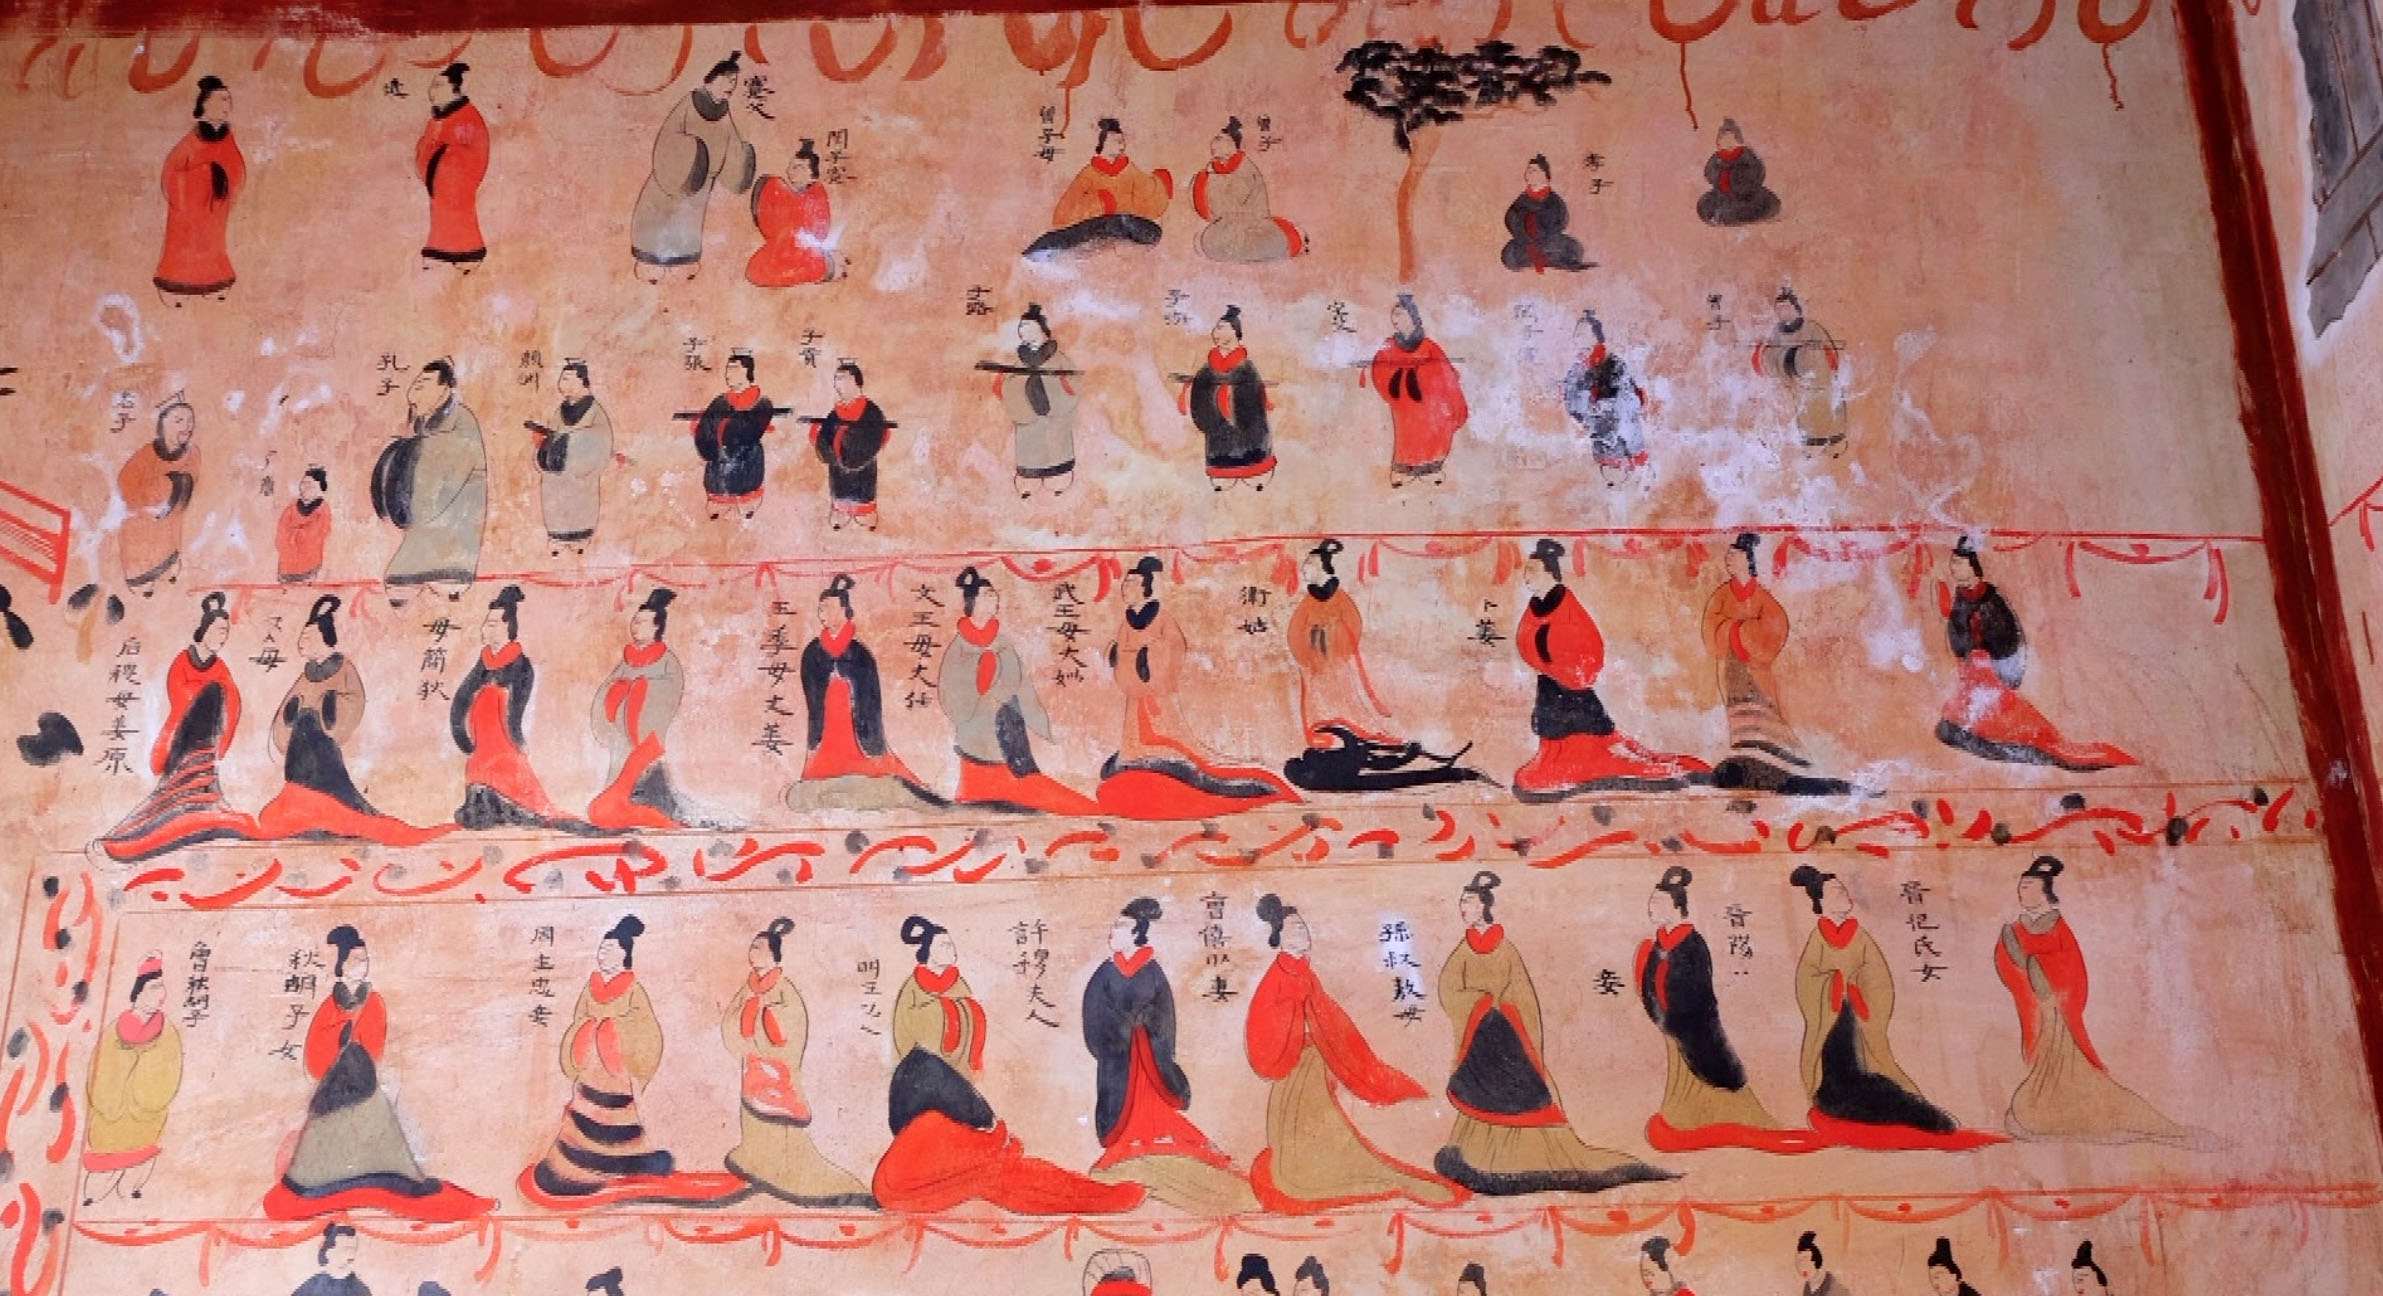 騫父
閔子騫
曾子母
曾子
孝子
老子
孔子
顔淵
子張
子貢
子路
子游
騫父
閔子騫
曾子
后稷母姜原
母簡狄
王季母大姜
文王母大任
武王母大姒
衛姑
卜姜
魯秋胡子
秋胡子女
周主忠妾
許穆夫人
曹僖氏妻
孫叔敖母
妾
晋陽
晋圯氏女